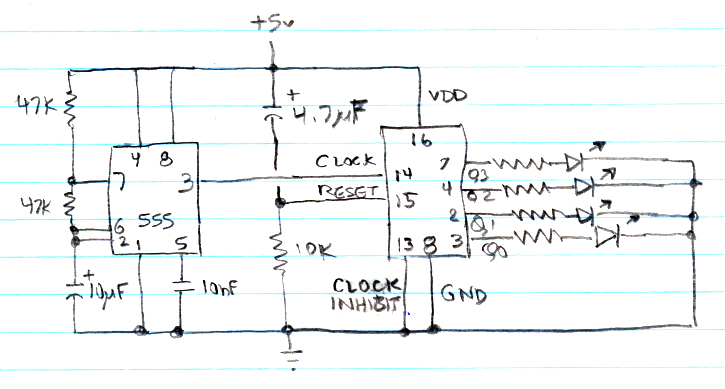 +5v
47K
+
4.7µF
VDD
4 8
16
7
3
CLOCK
14
7
Q3
RESET
15
4
Q2
47K
6
555
2
Q1
2
1
5
10K
13
8
3
Q0
+
10µF
10nF
CLOCK
INHIBIT
GND